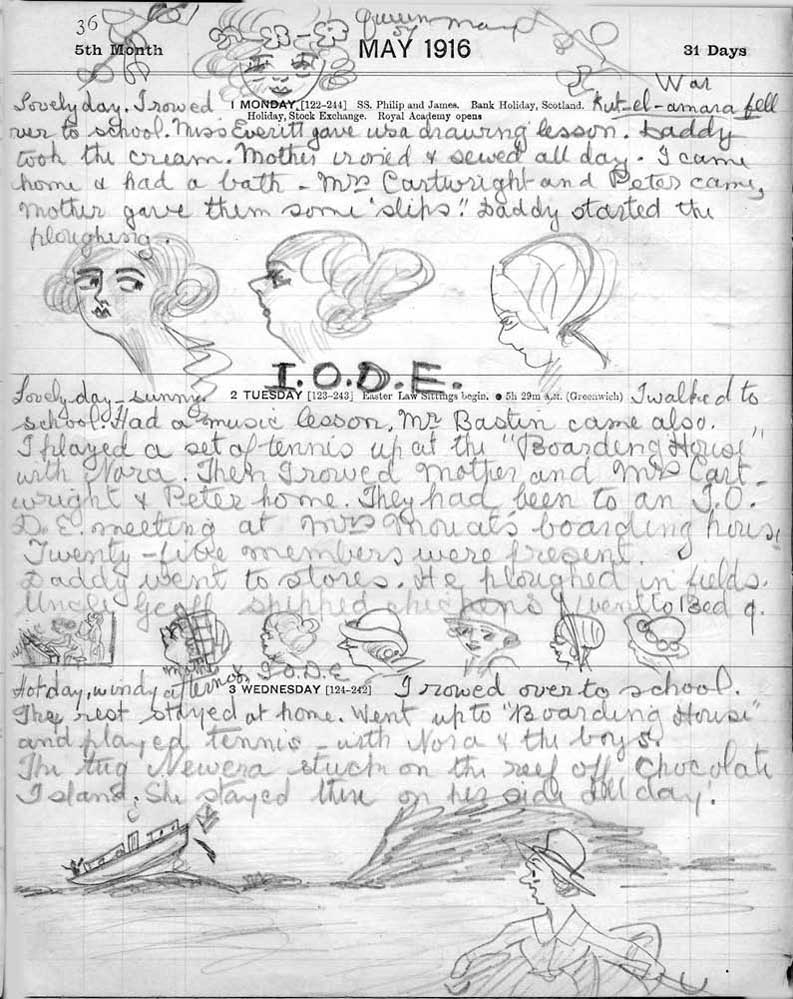 36
Queen Mary
5th Month
MAY 1916
31 Days
War
Lovely day. I rowed 1 MONDAY [122-244] SS. Philip and James. Bank Holiday, Scotland. Kut-el-amara fell
Holiday, Stock Exchange. Royal Academy opens
over to school. Miss Everitt gave us a drawing lesson. Daddy
took the cream. Mother ironed & sewed all day. I came
home & had a bath - Mrs Cartwright and Peter came,
Mother gave them some 'slips'. Daddy started the
ploughing.
I.O.D.E.
Lovely day - sunny. 2 TUESDAY [123-243] Easter Law Sittings begin. ● 5h 29m a.m. (Greenwich) I walked to
school. Had a music lesson, Mr Bastin came also.
I played a set of tennis up at the "Boarding House"
with Nora. Then I rowed Mother and Mrs Cart-
wright & Peter home. They had been to an I.O.
D.E. meeting at Mrs Mouat's boarding house
Twenty-five members were present.
Daddy went to stores. He ploughed in fields.
Uncle Geoff shipped chickens I went to Bed 9.
I.O.D.E
Hot day, windy afternoon 3 WEDNESDAY [124-242] I rowed over to school.
They rest stayed at home. Went up to "Boarding House"
and played tennis - with Nora & the boys.
The tug Newera stuck on the reef off Chocolate
Island. She stayed there on her side all day!